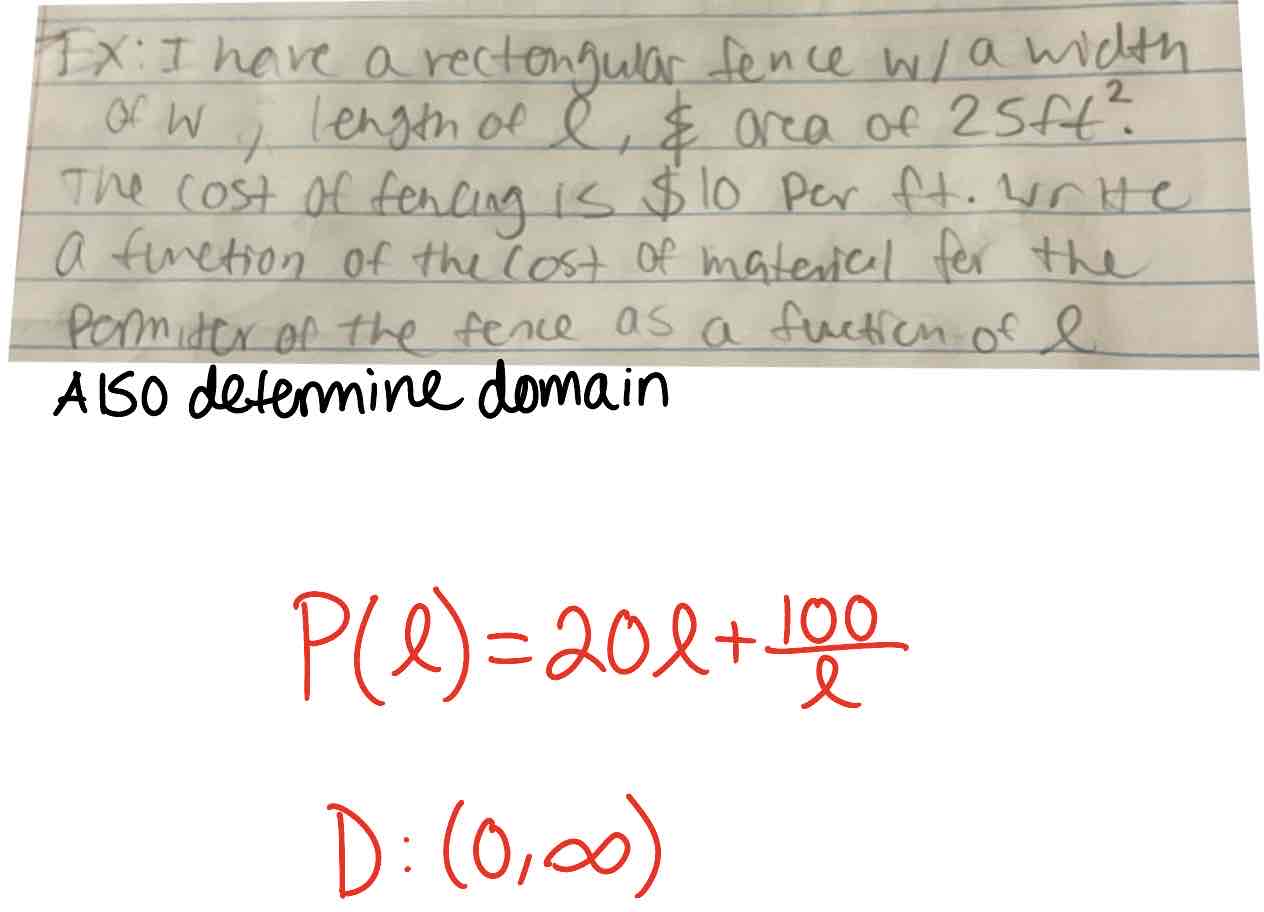 Ex: I have a rectongular fence w/ a width
of w, length of l, & area of 25ft².
The cost of fencing is $10 per ft. Write
a function of the cost of material for the
permiter of the fence as a fuction of l
Also determine domain
P(l) = 20l + 100/l
D: (0, ∞)